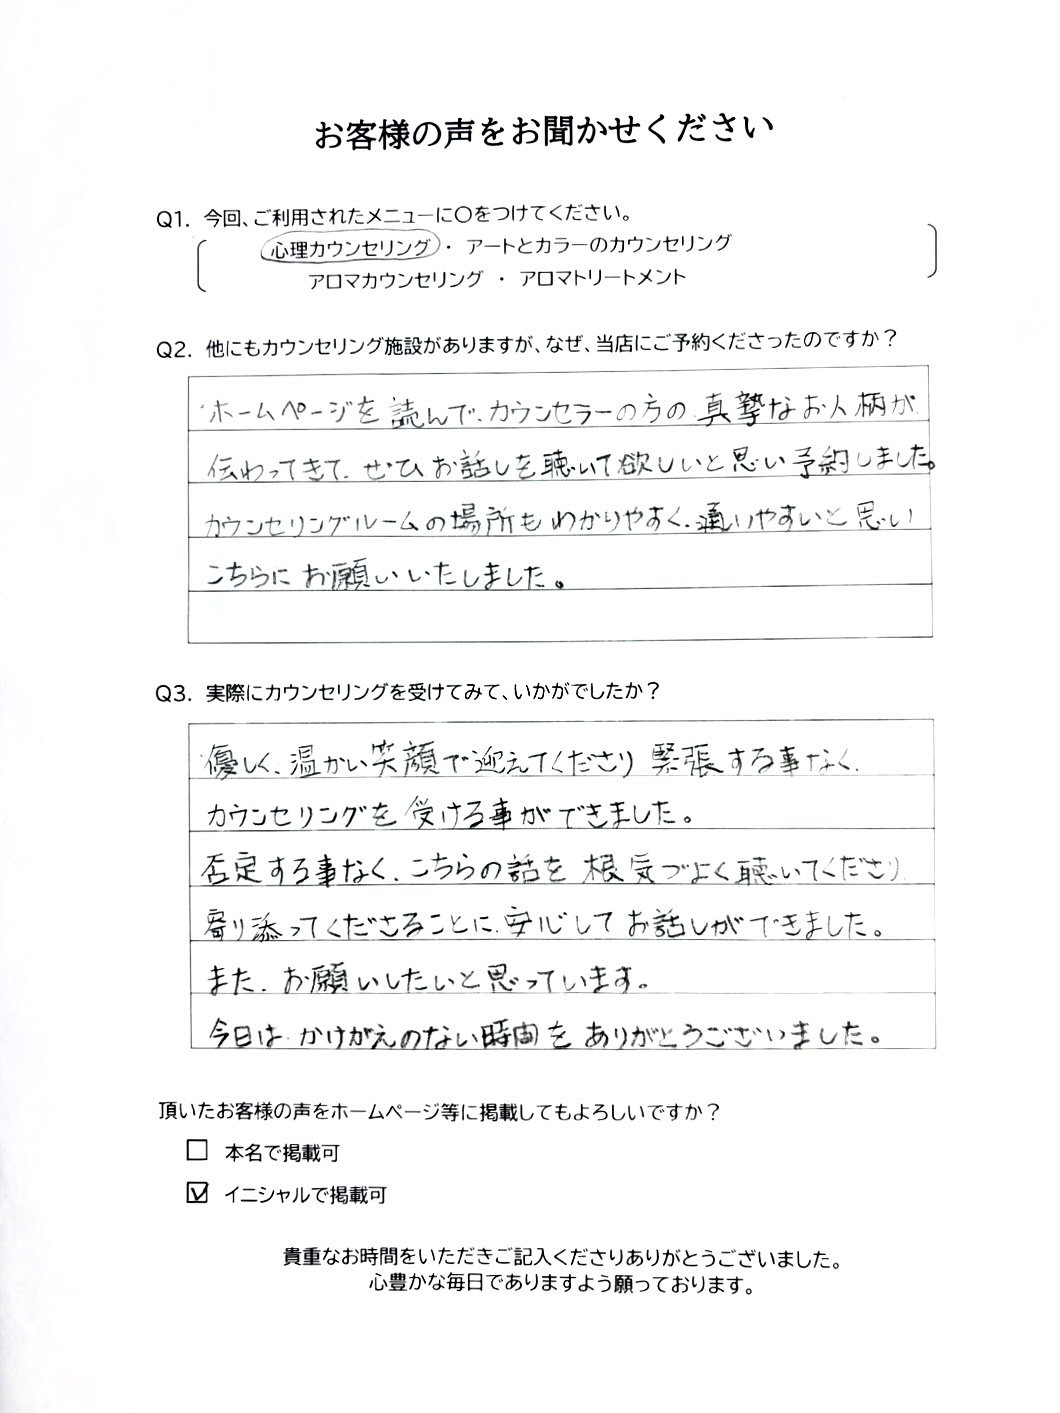 お客様の声をお聞かせください
Q1. 今回、ご利用されたメニューに〇をつけてください。
心理カウンセリング ・ アートとカラーのカウンセリング
アロマカウンセリング ・ アロマトリートメント
Q2. 他にもカウンセリング施設がありますが、なぜ、当店にご予約くださったのですか？
ホームページを読んで、カウンセラーの方の真摯なお人柄が
伝わってきて、ぜひお話しを聴いて欲しいと思い予約しました。
カウンセリングルームの場所もわかりやすく、通いやすいと思い
こちらにお願いいたしました。
Q3. 実際にカウンセリングを受けてみて、いかがでしたか？
優しく、温かい笑顔で迎えてくださり緊張する事なく、
カウンセリングを受ける事ができました。
否定する事なく、こちらの話を根気づよく聴いてくださり
寄り添ってくださることに、安心してお話しができました。
また、お願いしたいと思っています。
今日は、かけがえのない時間をありがとうございました。
頂いたお客様の声をホームページ等に掲載してもよろしいですか？
☐ 本名で掲載可
☑ イニシャルで掲載可
貴重なお時間をいただきご記入くださりありがとうございました。
心豊かな毎日でありますよう願っております。